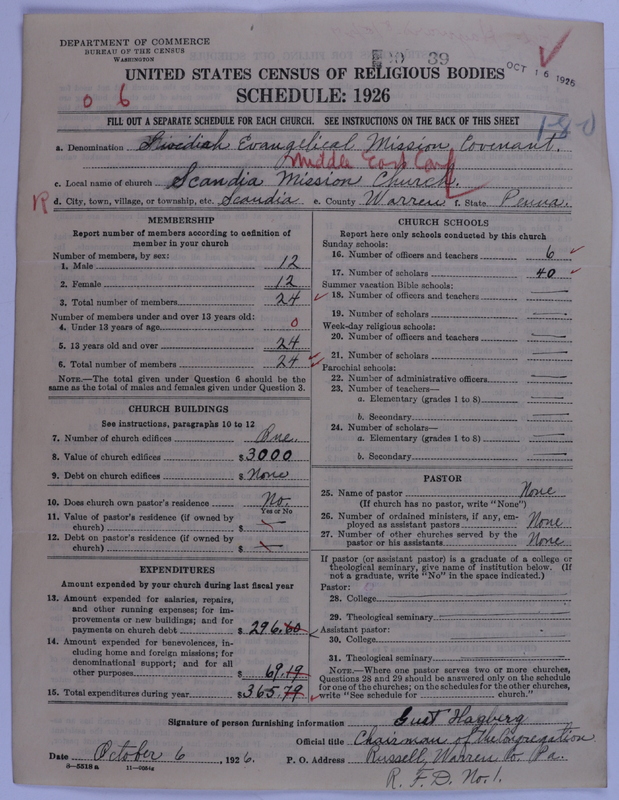 DEPARTMENT OF COMMERCE
BUREAU OF THE CENSUS
WASHINGTON
39
OCT 16 1926
UNITED STATES CENSUS OF RELIGIOUS BODIES
SCHEDULE: 1926
0 6
FILL OUT A SEPARATE SCHEDULE FOR EACH CHURCH. SEE INSTRUCTIONS ON THE BACK OF THIS SHEET
1-8-0
a. Denomination Swedish Evangelical Mission Covenant.
Middle East Conf
c. Local name of church Scandia Mission Church.
R d. City, town, village, or township, etc. Scandia e. County Warren f. State Penna.
MEMBERSHIP
Report number of members according to definition of
member in your church
Number of members, by sex:
1. Male 12
2. Female 12
3. Total number of members 24
Number of members under and over 13 years old:
4. Under 13 years of age 0
5. 13 years old and over 24
6. Total number of members 24
NOTE.—The total given under Question 6 should be the
same as the total of males and females given under Question 3.
CHURCH BUILDINGS
See instructions, paragraphs 10 to 12
7. Number of church edifices One.
8. Value of church edifices $ 3000
9. Debt on church edifices $ None
10. Does church own pastor's residence No.
Yes or No
11. Value of pastor's residence (if owned by
church) $
12. Debt on pastor's residence (if owned by
church) $
EXPENDITURES
Amount expended by your church during last fiscal year
13. Amount expended for salaries, repairs,
and other running expenses; for im-
provements or new buildings; and for
payments on church debt $ 296.60
14. Amount expended for benevolences, in-
cluding home and foreign missions; for
denominational support; and for all
other purposes $ 69.19
15. Total expenditures during year $ 365.79
CHURCH SCHOOLS
Report here only schools conducted by this church
Sunday schools:
16. Number of officers and teachers 6
17. Number of scholars 40
Summer vacation Bible schools:
18. Number of officers and teachers
19. Number of scholars
Week-day religious schools:
20. Number of officers and teachers
21. Number of scholars
Parochial schools:
22. Number of administrative officers
23. Number of teachers—
a. Elementary (grades 1 to 8)
b. Secondary
24. Number of scholars—
a. Elementary (grades 1 to 8)
b. Secondary
PASTOR
25. Name of pastor None
(If church has no pastor, write "None")
26. Number of ordained ministers, if any, em-
ployed as assistant pastors None
27. Number of other churches served by the
pastor or his assistants None
If pastor (or assistant pastor) is a graduate of a college or
theological seminary, give name of institution below. (If
not a graduate, write "No" in the space indicated.)
Pastor:
28. College
29. Theological seminary
Assistant pastor:
30. College
31. Theological seminary
NOTE.—Where one pastor serves two or more churches,
Questions 28 and 29 should be answered only on the schedule
for one of the churches; on the schedules for the other churches,
write "See schedule for church."
Signature of person furnishing information Gust Hagberg
Official title Chairman of the Congregation
Date October 6, 1926. P. O. Address Russell, Warren Co. Pa.
8—5518 a 11—9051
R. F. D. No. 1.